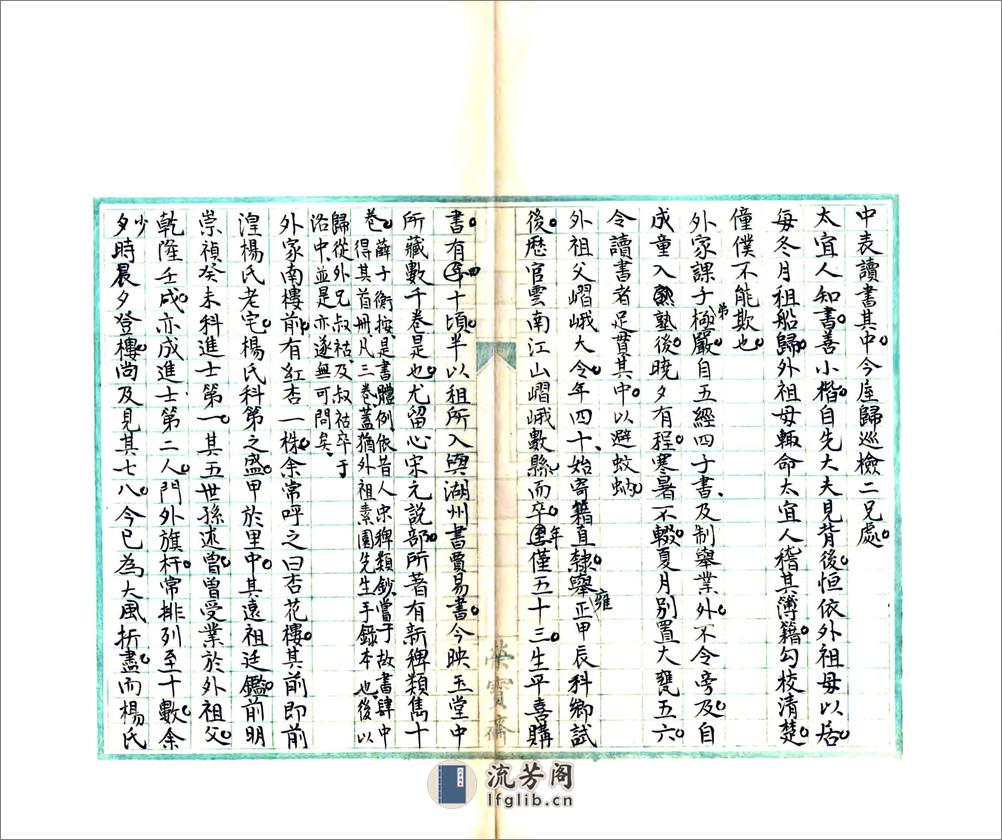 中表讀書其中今屋歸巡檢二兄處
太宜人知書善小楷自先大夫見背後恒依外祖母以居
每冬月租船歸外祖母輙命太宜人稽其簿籍勾校清楚
僮僕不能欺也
外家課子弟極嚴自五經四子書及制舉業外不令旁及自
成童入塾後曉夕有程寒暑不輟夏月別置大甕五六
令讀書者足貫其中以避蚊蚋
外祖父嶍峨大令年四十始寄籍直隸舉雍正甲辰科鄉試
後歷官雲南江山嶍峨數縣而卒年僅五十三生平喜購
書有田十頃半以租所入與湖州書賈易書今映玉堂中
所藏數千卷是也尤留心宋元說部所著有新稗類雋十
卷薛子衡按是書體例依昔人宋稗類鈔嘗于故書肆中
得其首冊凡三卷蓋猶外祖素園先生手錄本也後以
歸從外兄叔祜及叔祜卒于
洛中並是亦遂無可問矣
外家南樓前有紅杏一株余常呼之曰杏花樓其前即前
湟楊氏老宅楊氏科第之盛甲於里中其遠祖廷鑑前明
崇禎癸未科進士第一其五世孫述曾曾受業於外祖父
乾隆壬戌亦成進士第二人門外旗杆常排列至十數余
少時晨夕登樓尚及見其七八今已為大風折盡而楊氏
榮寶齋
流芳阁
lfglib.cn